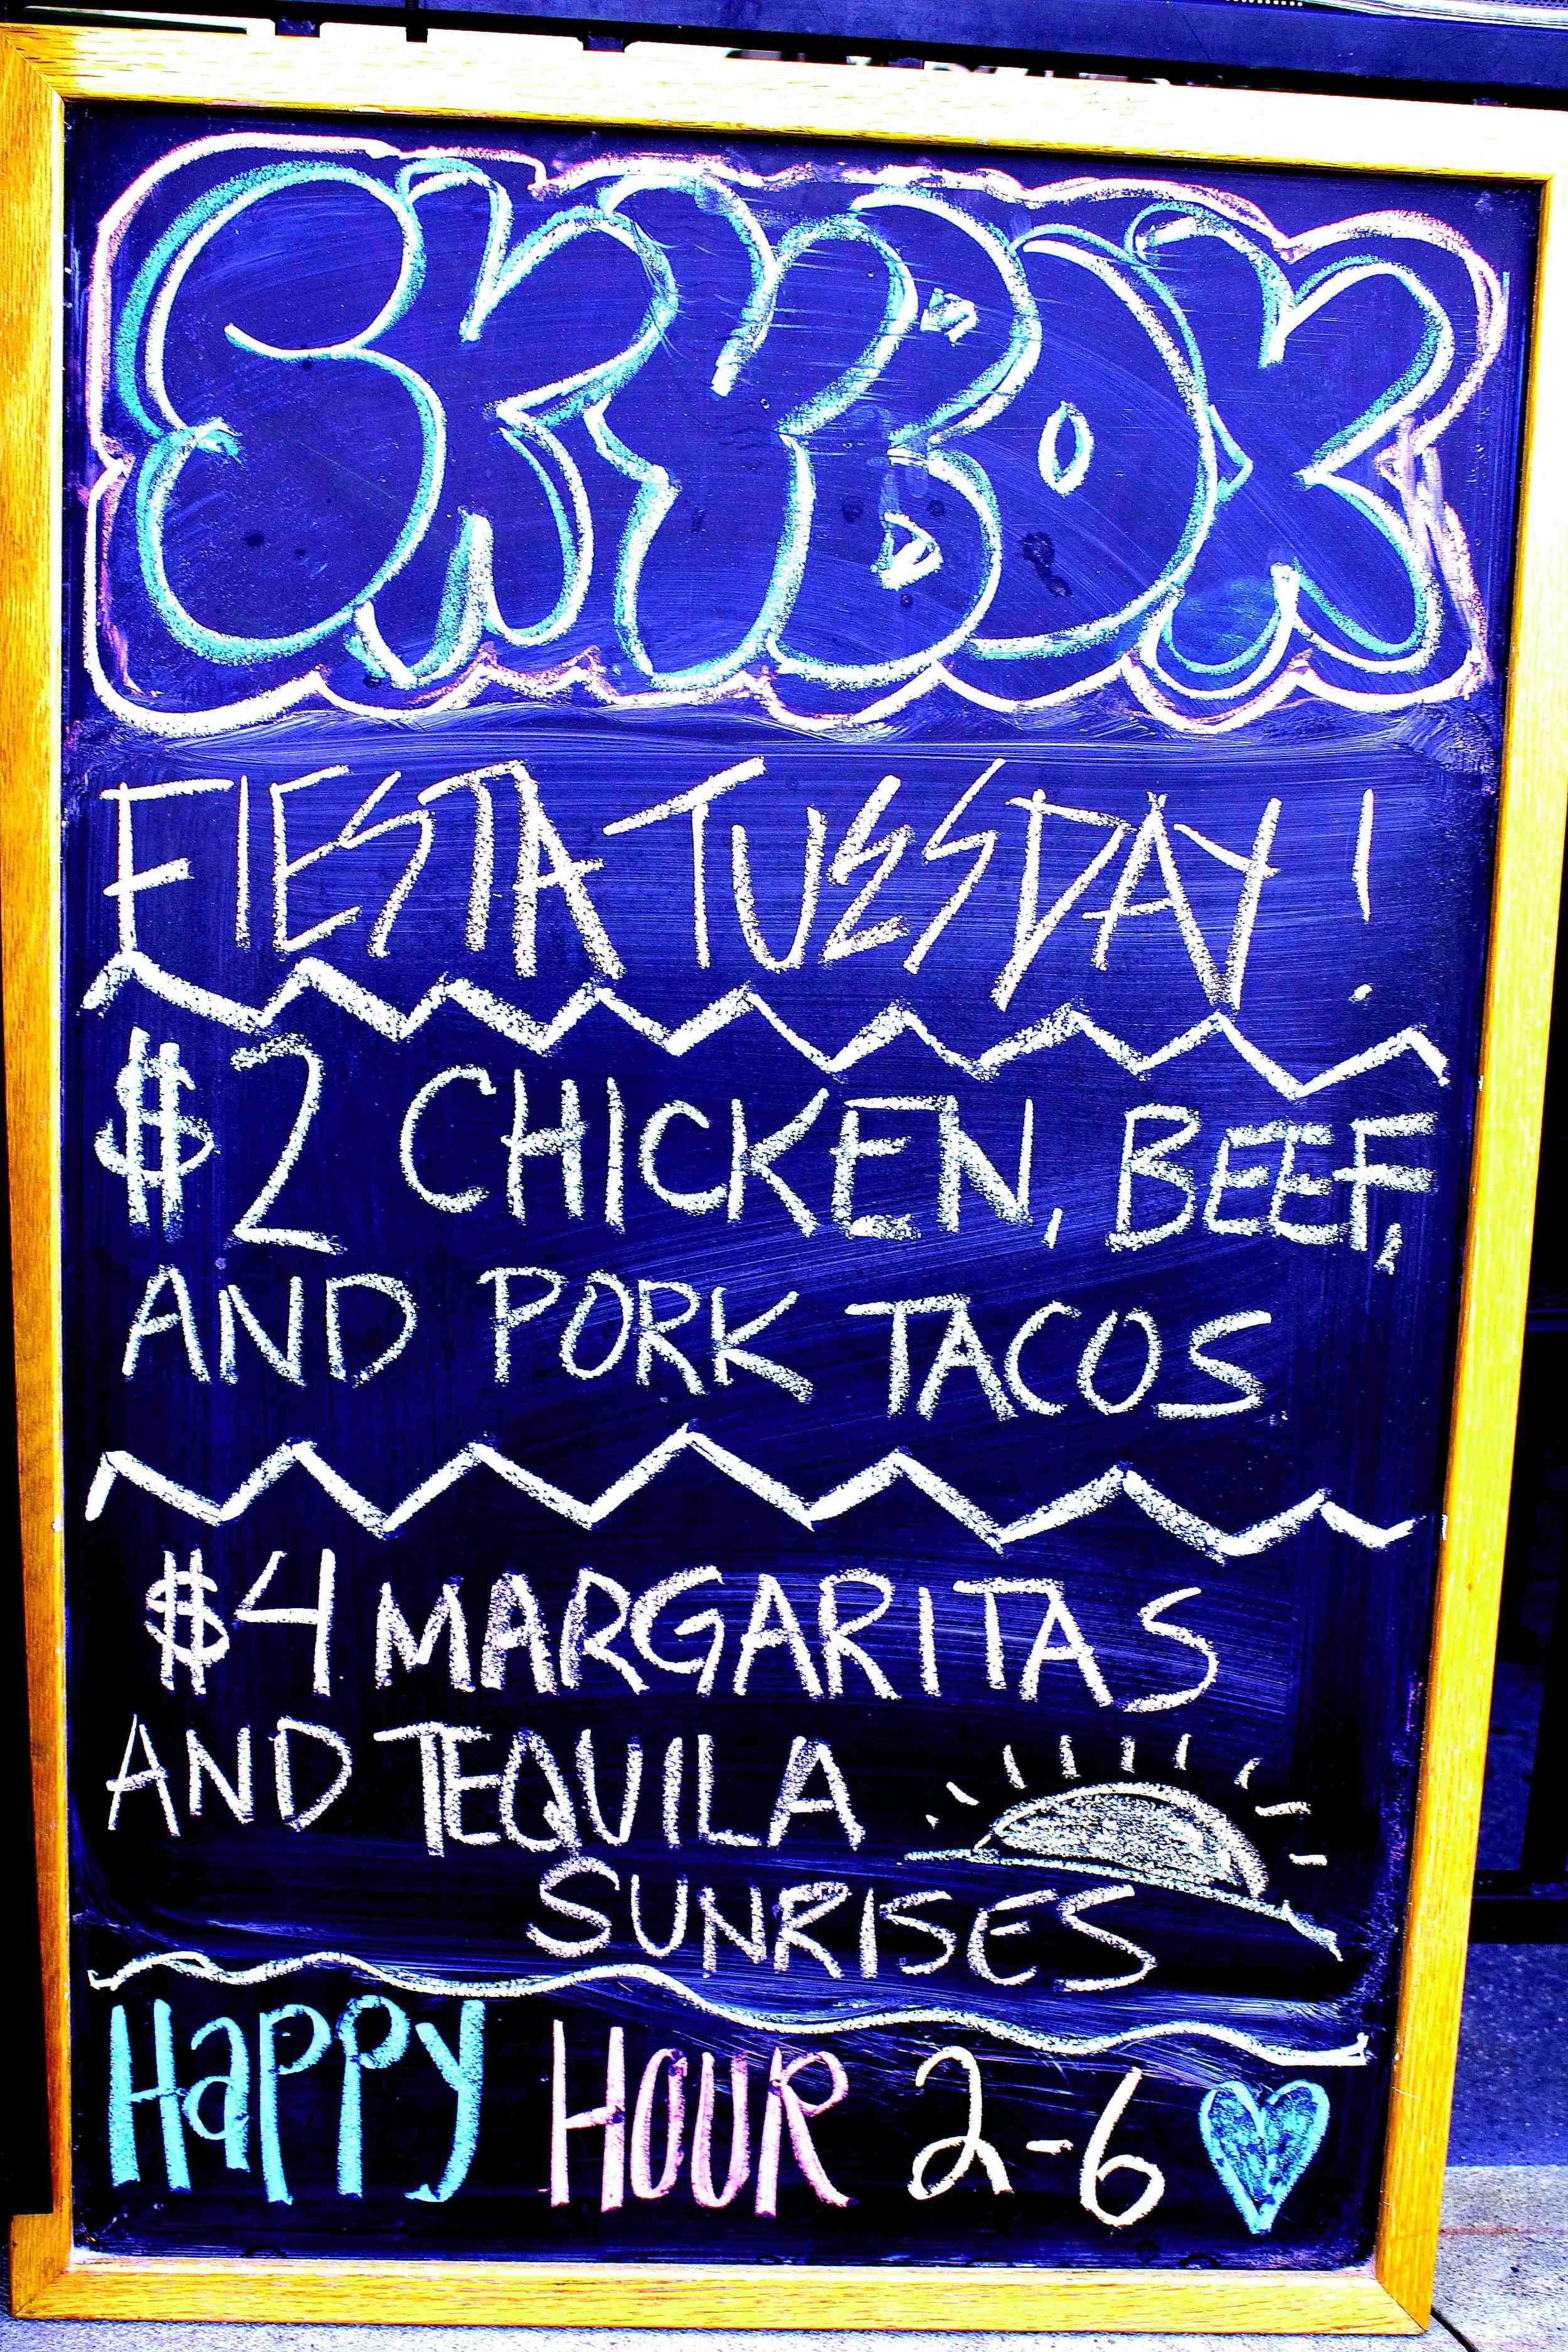 SKYBOX
FIESTA TUESDAY!
$2 CHICKEN, BEEF,
AND PORK TACOS
$4 MARGARITAS
AND TEQUILA
SUNRISES
Happy HOUR 2-6